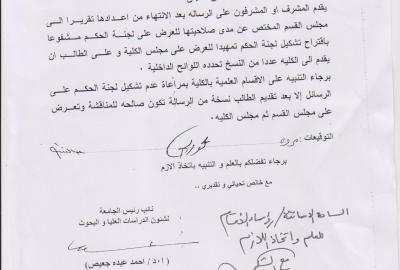 يقدم المشرف او المشرفون على الرساله بعد الانتهاء من اعدادها تقريرا الى
مجلس القسم المختص عن مدى صلاحيتها للعرض على لجنة الحكم مشفوعا
باقتراح تشكيل لجنة الحكم تمهيدا للعرض على مجلس الكلية و على الطالب ان
يقدم الى الكليه عددا من النسخ تحدده اللوائح الداخلية .
برجاء التنبيه على الاقسام العلمية بالكلية بمراعاة عدم تشكيل لجنة الحكم على
الرسائل إلا بعد تقديم الطالب نسخة من الرسالة تكون صالحه للمناقشة وتعرض
على مجلس القسم ثم مجلس الكليه.
التوقيعات:
برجاء تفضلكم بالعلم و التنبيه باتخاذ الازم
مع خالص تحياتي و تقديري ،،
نائب رئيس الجامعة
لشئون الدراسات العليا و البحوث
(ا.د/ احمد عبده جعيص)
السادة الاساتذة / رؤساء الأقسام
للعلم واتخاذ اللازم
مع الشكر